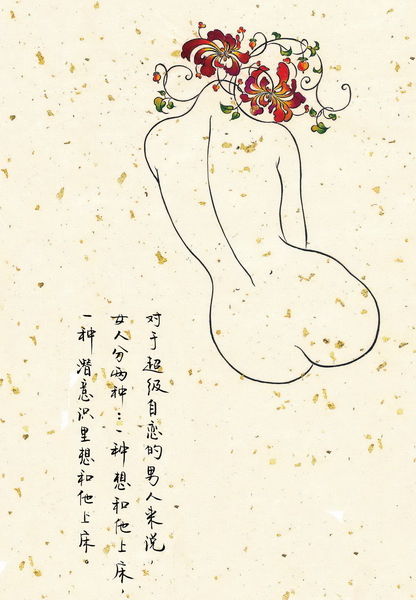 对于超级自恋的男人来说，
女人分两种：一种想和他上床，
一种潜意识里想和他上床。